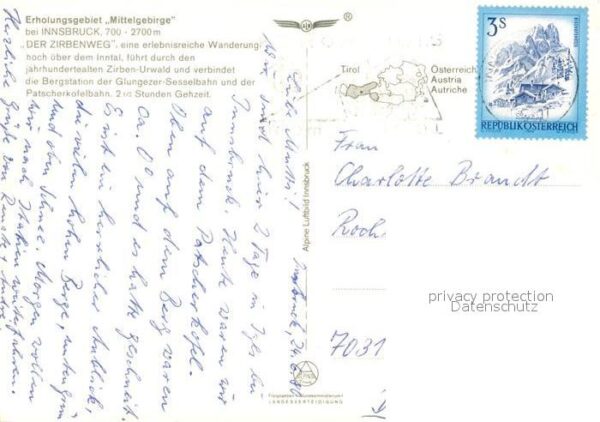 Erholungsgebiet „Mittelgebirge"
bei INNSBRUCK, 700 - 2700 m
„DER ZIRBENWEG", eine erlebnisreiche Wanderung
hoch über dem Inntal, führt durch den
jahrhundertealten Zirben-Urwald und verbindet
die Bergstation der Glungezer-Sesselbahn und der
Patscherkofelbahn. 2 1/2 Stunden Gehzeit.
®
Tirol
Österreich
Austria
Autriche
3 S
REPUBLIK ÖSTERREICH
Alpine Luftbild Innsbruck
LANDESVERTEIDIGUNG
Innsbruck, 24.6.80
Liebe Mutti!
Wir sind hier 2 Tage in Igls bei
Innsbruck. Heute waren wir
auf dem Patscherkofel.
Oben auf dem Berg waren
ca. 0° und es hatte geschneit.
Es ist ein herrlicher Anblick,
die vielen hohen Berge, unten grün
und oben Schnee. Morgen wollen
wir nach Italien weiterfahren.
Herzliche Grüße von
Frau
Charlotte Brandt
Roch
7031
privacy protection
Datenschutz